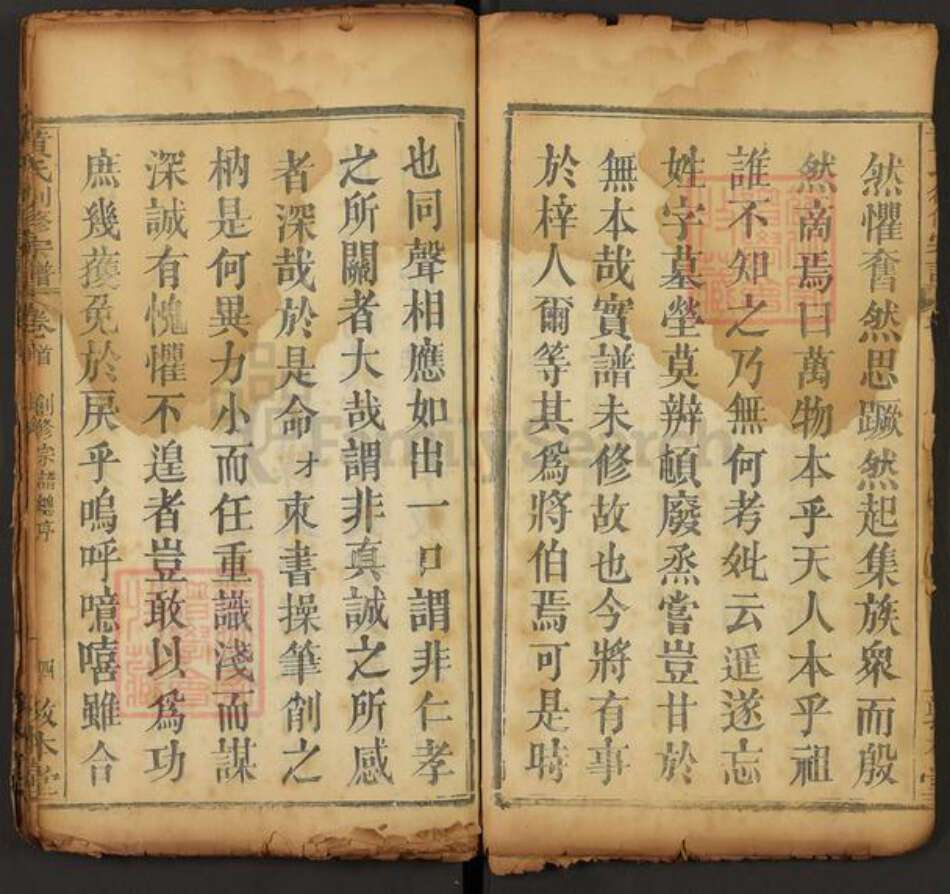 然懼奮然思蹶然起集族衆而殷
然啇焉曰萬物本乎天人本乎祖
誰不知之乃無何考妣云遥遂忘
姓字墓塋莫辨頓廢烝嘗豈甘於
無本哉實譜未修故也今將有事
於梓人爾等其爲將伯焉可是時
也同聲相應如出一口謂非仁孝
之所關者大哉謂非真誠之所感
者深哉於是命才束書操筆削之
枘是何異力小而任重識淺而謀
深誠有愧懼不遑者豈敢以爲功
庶幾獲免於戾乎嗚呼噫嘻雖合
黃氏創修宗譜 卷首 創修宗譜總序 四 敦木堂
FamilySearch